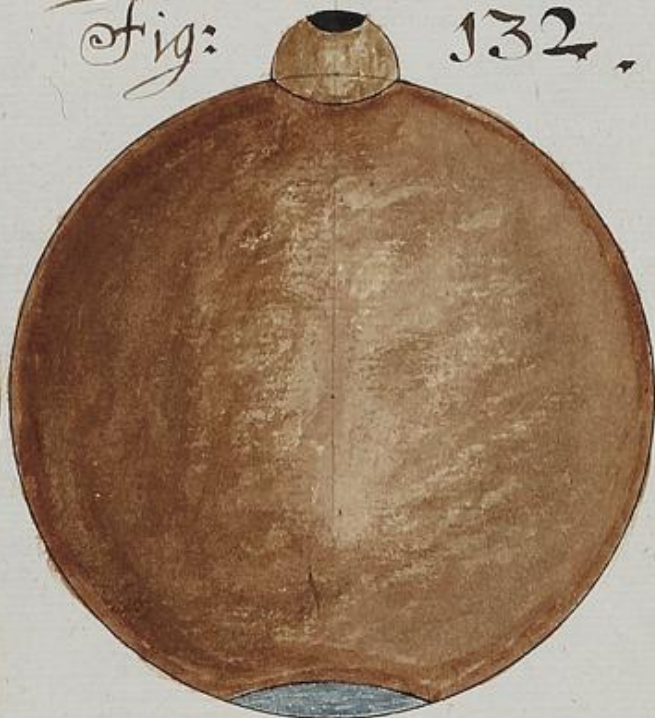 Fig: 132.